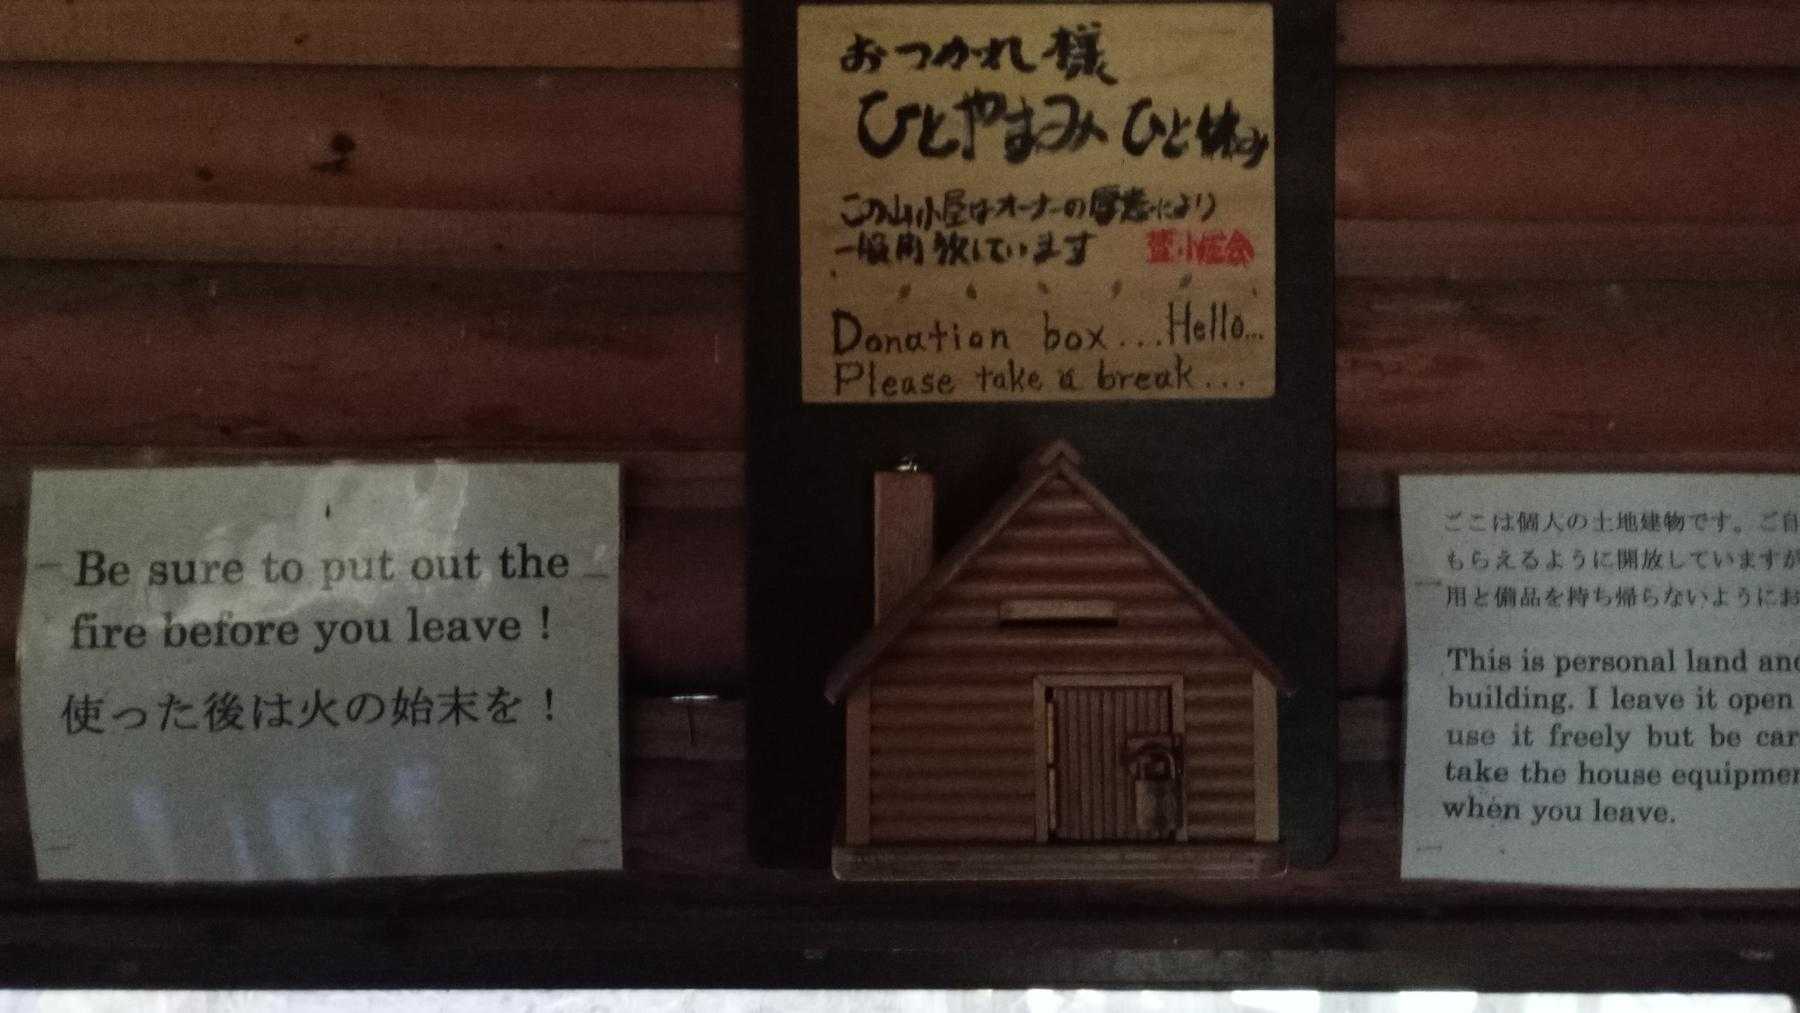 おつかれ様
ひとやまみ ひと休み
この山小屋はオーナーの厚意により
一般開放しています
Donation box...Hello...
Please take a break...
Be sure to put out the
fire before you leave !
使った後は火の始末を！
ここは個人の土地建物です。ご自
もらえるように開放していますが
用と備品を持ち帰らないようにお
This is personal land and
building. I leave it open
use it freely but be car
take the house equipmen
when you leave.